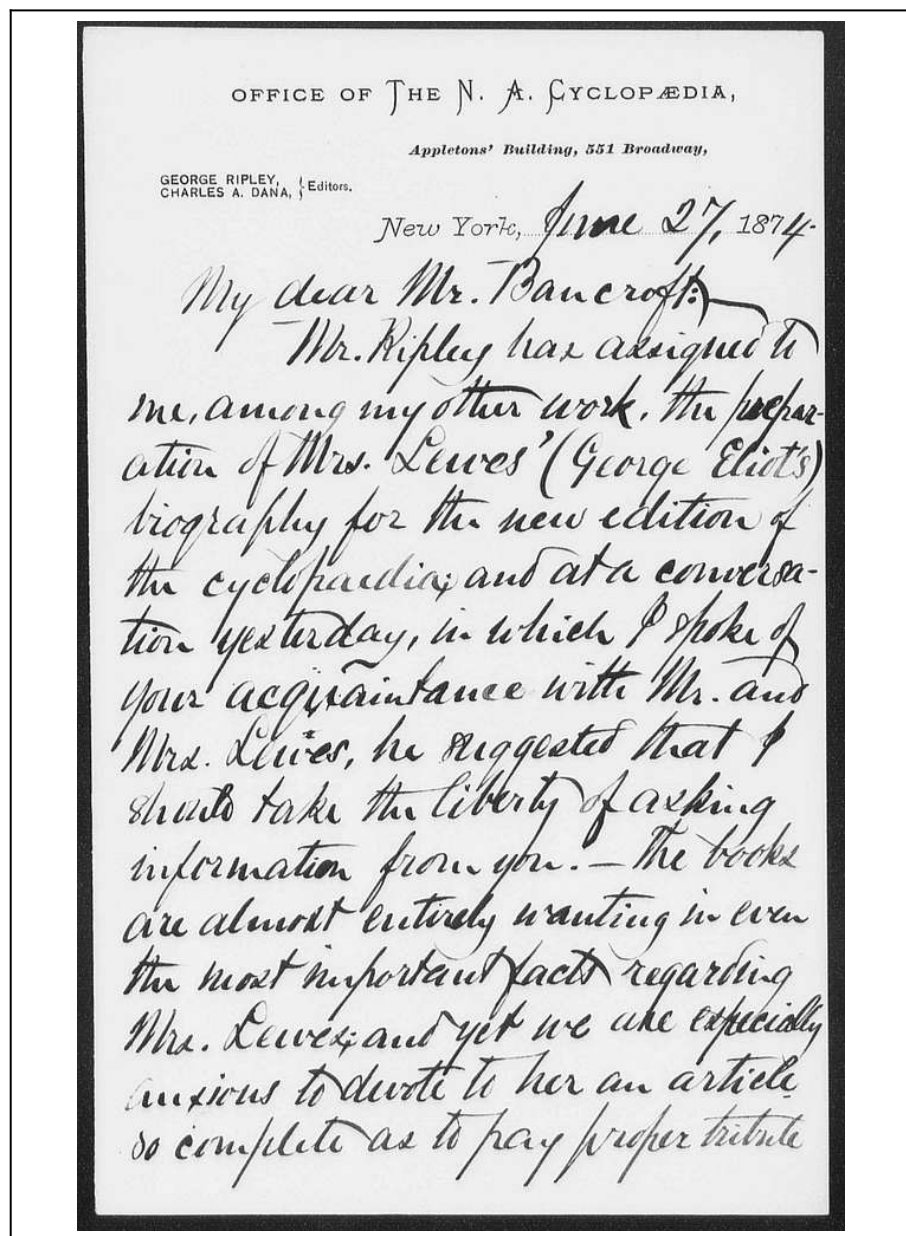 OFFICE OF THE N. A. CYCLOPÆDIA,
Appletons' Building, 551 Broadway,
GEORGE RIPLEY,
CHARLES A. DANA, } Editors.
New York, June 27, 1874.
My dear Mr. Bancroft:
Mr. Ripley has assigned to
me, among my other work, the prepar-
ation of Mrs. Lewes' (George Eliot's)
biography for the new edition of
the cyclopaedia; and at a conversa-
tion yesterday, in which I spoke of
your acquaintance with Mr. and
Mrs. Lewes, he suggested that I
should take the liberty of asking
information from you. — The books
are almost entirely wanting in even
the most important facts regarding
Mrs. Lewes; and yet we are especially
anxious to devote to her an article
so complete as to pay proper tribute